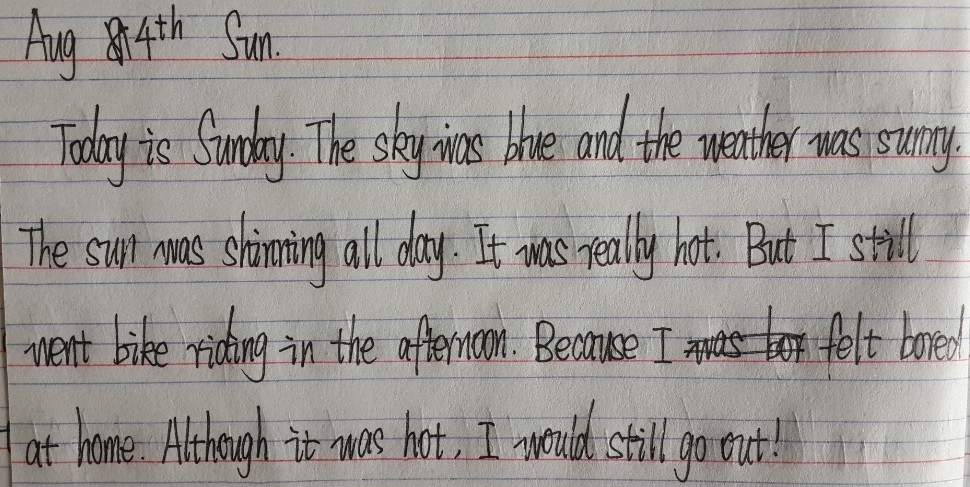 Aug 4th Sun.
Today is Sunday. The sky was blue and the weather was sunny.
The sun was shinning all day. It was really hot. But I still
went bike riding in the afternoon. Because I felt bored
at home. Although it was hot, I would still go out!